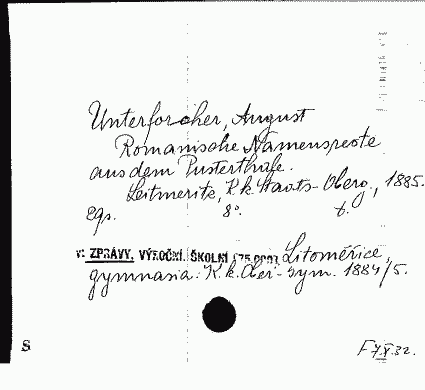 Unterforcher, August
Romanische Namensreste
aus dem Pusterthale.
Leitmeritz, K.k. Staats-Oberg., 1885.
Egs. 8°. b.
v: ZPRÁVY, VÝROČNÍ, ŠKOLNÍ (75.000). Litoměřice,
gymnasia: K.k. Ober-Gym. 1884/5.
S
F 7.X.32.